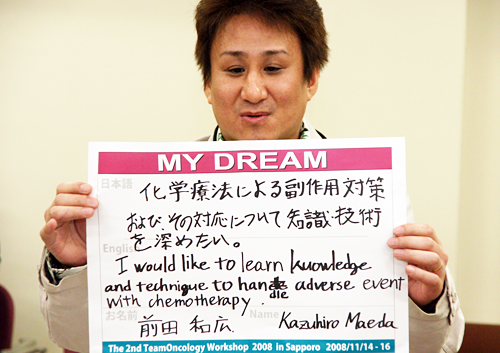 MY DREAM
日本語
化学療法による副作用対策
および、その対応について知識・技術
を深めたい。
English
I would like to learn knowledge
and technique to handle adverse event
with chemotherapy.
お名前
前田 和広
Name
Kazuhiro Maeda
The 2nd TeamOncology Workshop 2008 in Sapporo 2008/11/14 - 16